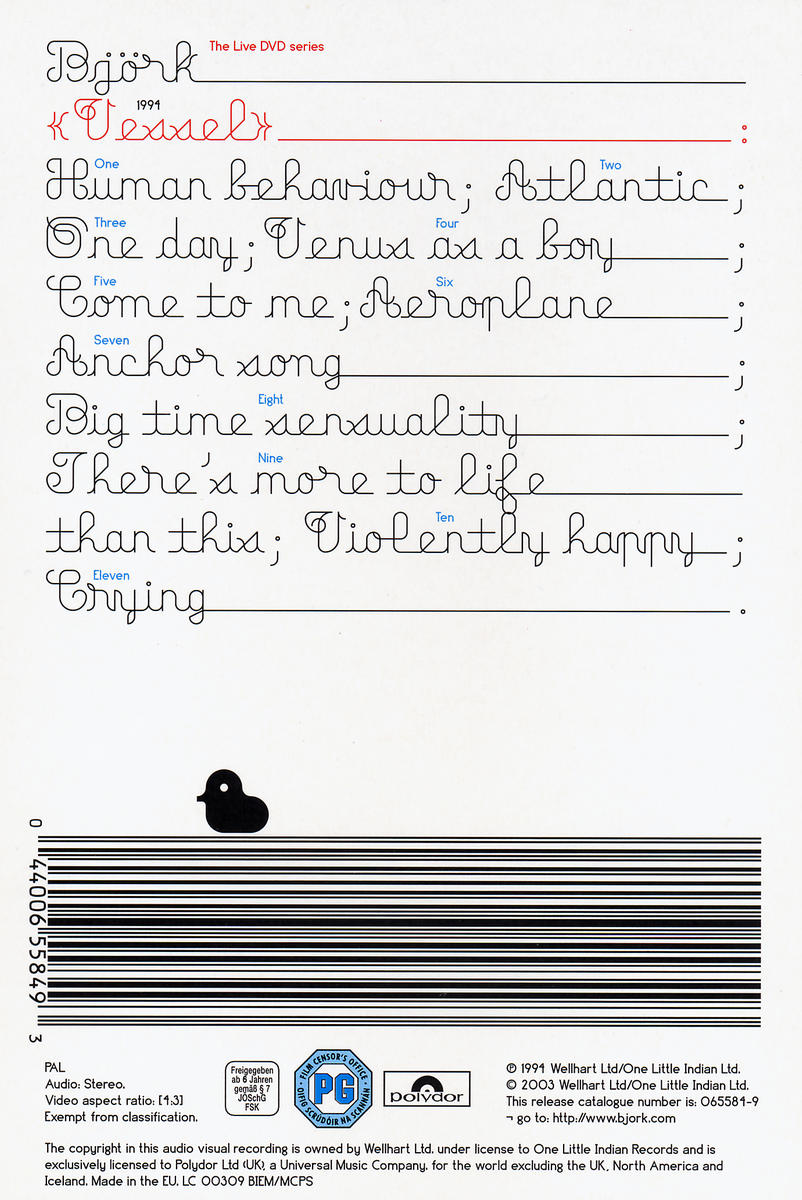 Björk The Live DVD series
1994
{Vessel} :
One Two
Human behaviour; Atlantic ;
Three Four
One day; Venus as a boy ;
Five Six
Come to me; Aeroplane ;
Seven
Anchor song ;
Eight
Big time sensuality ;
Nine
There's more to life
Ten
than this; Violently happy ;
Eleven
Crying .
0 44006 55849 3
PAL
Audio: Stereo.
Video aspect ratio: [4:3]
Exempt from classification.
Freigegeben
ab 6 Jahren
gemäß § 7
JÖSchG
FSK
· FILM CENSOR'S OFFICE ·
PG
OIFIG SCRÚDÓIR NA SCANNÁN
polydor
℗ 1994 Wellhart Ltd/One Little Indian Ltd.
© 2003 Wellhart Ltd/One Little Indian Ltd.
This release catalogue number is: 065584-9
¬ go to: http://www.bjork.com
The copyright in this audio visual recording is owned by Wellhart Ltd. under license to One Little Indian Records and is
exclusively licensed to Polydor Ltd (UK), a Universal Music Company, for the world excluding the UK, North America and
Iceland. Made in the EU. LC 00309 BIEM/MCPS